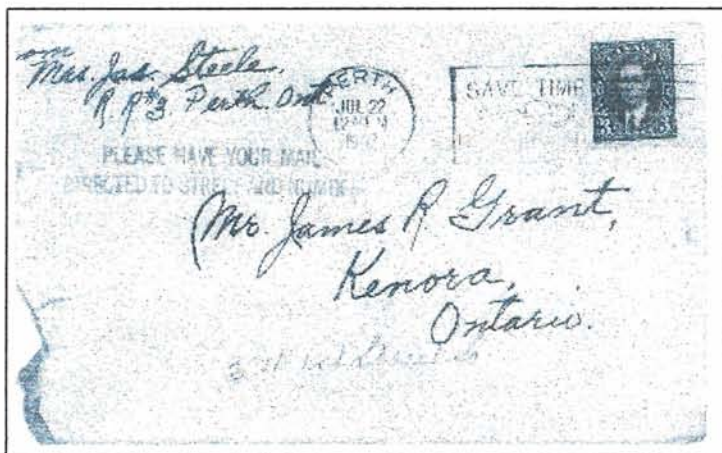 from
Mrs. Jas. Steele.
R. R #3. Perth Ont
PERTH
JUL 22
SAVE TIME
3 3
PLEASE HAVE YOUR MAIL
DIRECTED TO STREET AND NUMBER
Mr. James R Grant,
Kenora,
Ontario.